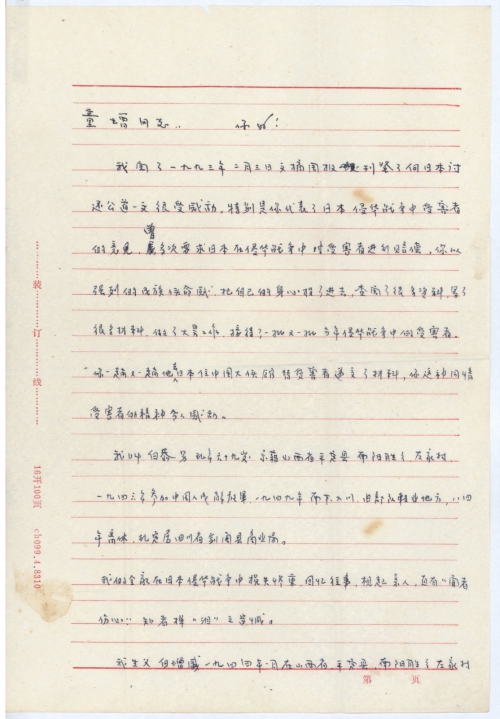 童增同志: 你好!
我阅了一九九三年二月三日文摘周报刊登了向日本讨
还公道一文很受感动,特别是你代表了日本侵华战争中受害者
的意见,曾多次要求日本在侵华战争中对受害者进行赔偿,你以
强烈的民族使命感,把自己的身心投了进去,查阅了很多资料,写了
很多材料,做了大量工作,接待了一批又一批当年侵华战争中的受害者,
你一趟又一趟地去日本住中国大使馆替受害者递交了材料,你这种同情
受害者的精神令人感动。
我叫 现年六十九岁 系藉山西省平定县
一九四六年参加中国人民解放军,一九四九年南下入川,由部队转业地方,
年离休,现定居四川省剑阁县商业局。
我的全家在日本侵华战争中损失惨重,回忆往事,想起亲人,真有"闻者
伤心" 知者掉"泪"之苦感。
我生父 一九四四年一月在山西省平定县,
第 页
装订线
16开100页 ch099.4.8310